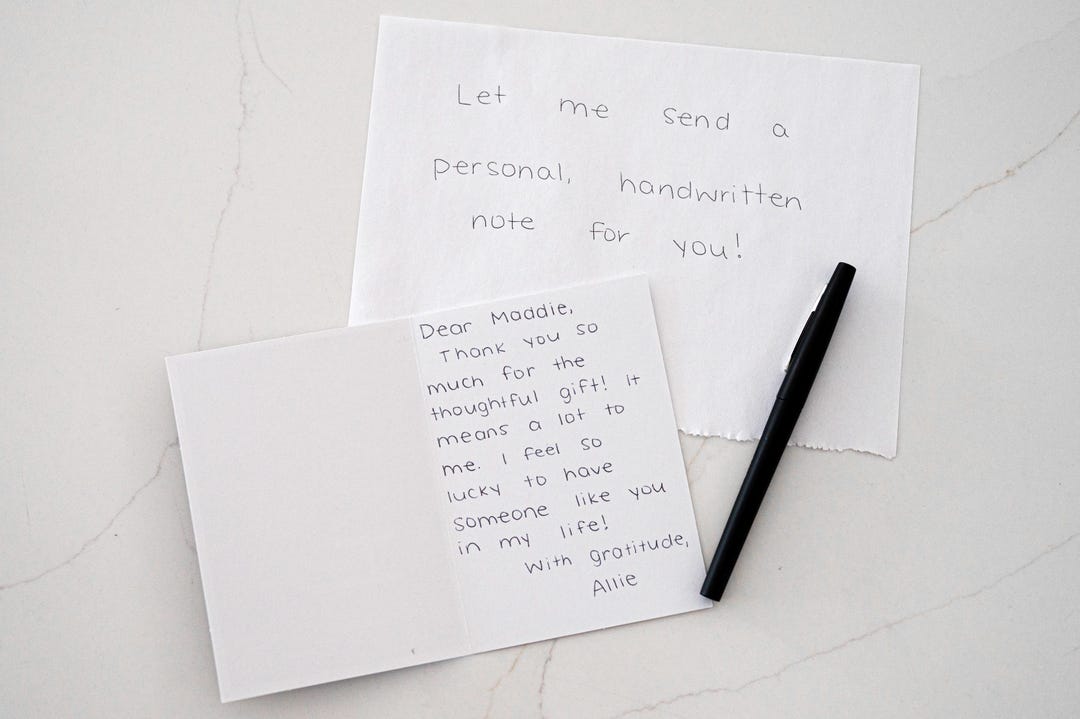 Let me send a
personal, handwritten
note for you!
Dear Maddie,
Thank you so
much for the
thoughtful gift! It
means a lot to
me. I feel so
lucky to have
someone like you
in my life!
With gratitude,
Allie